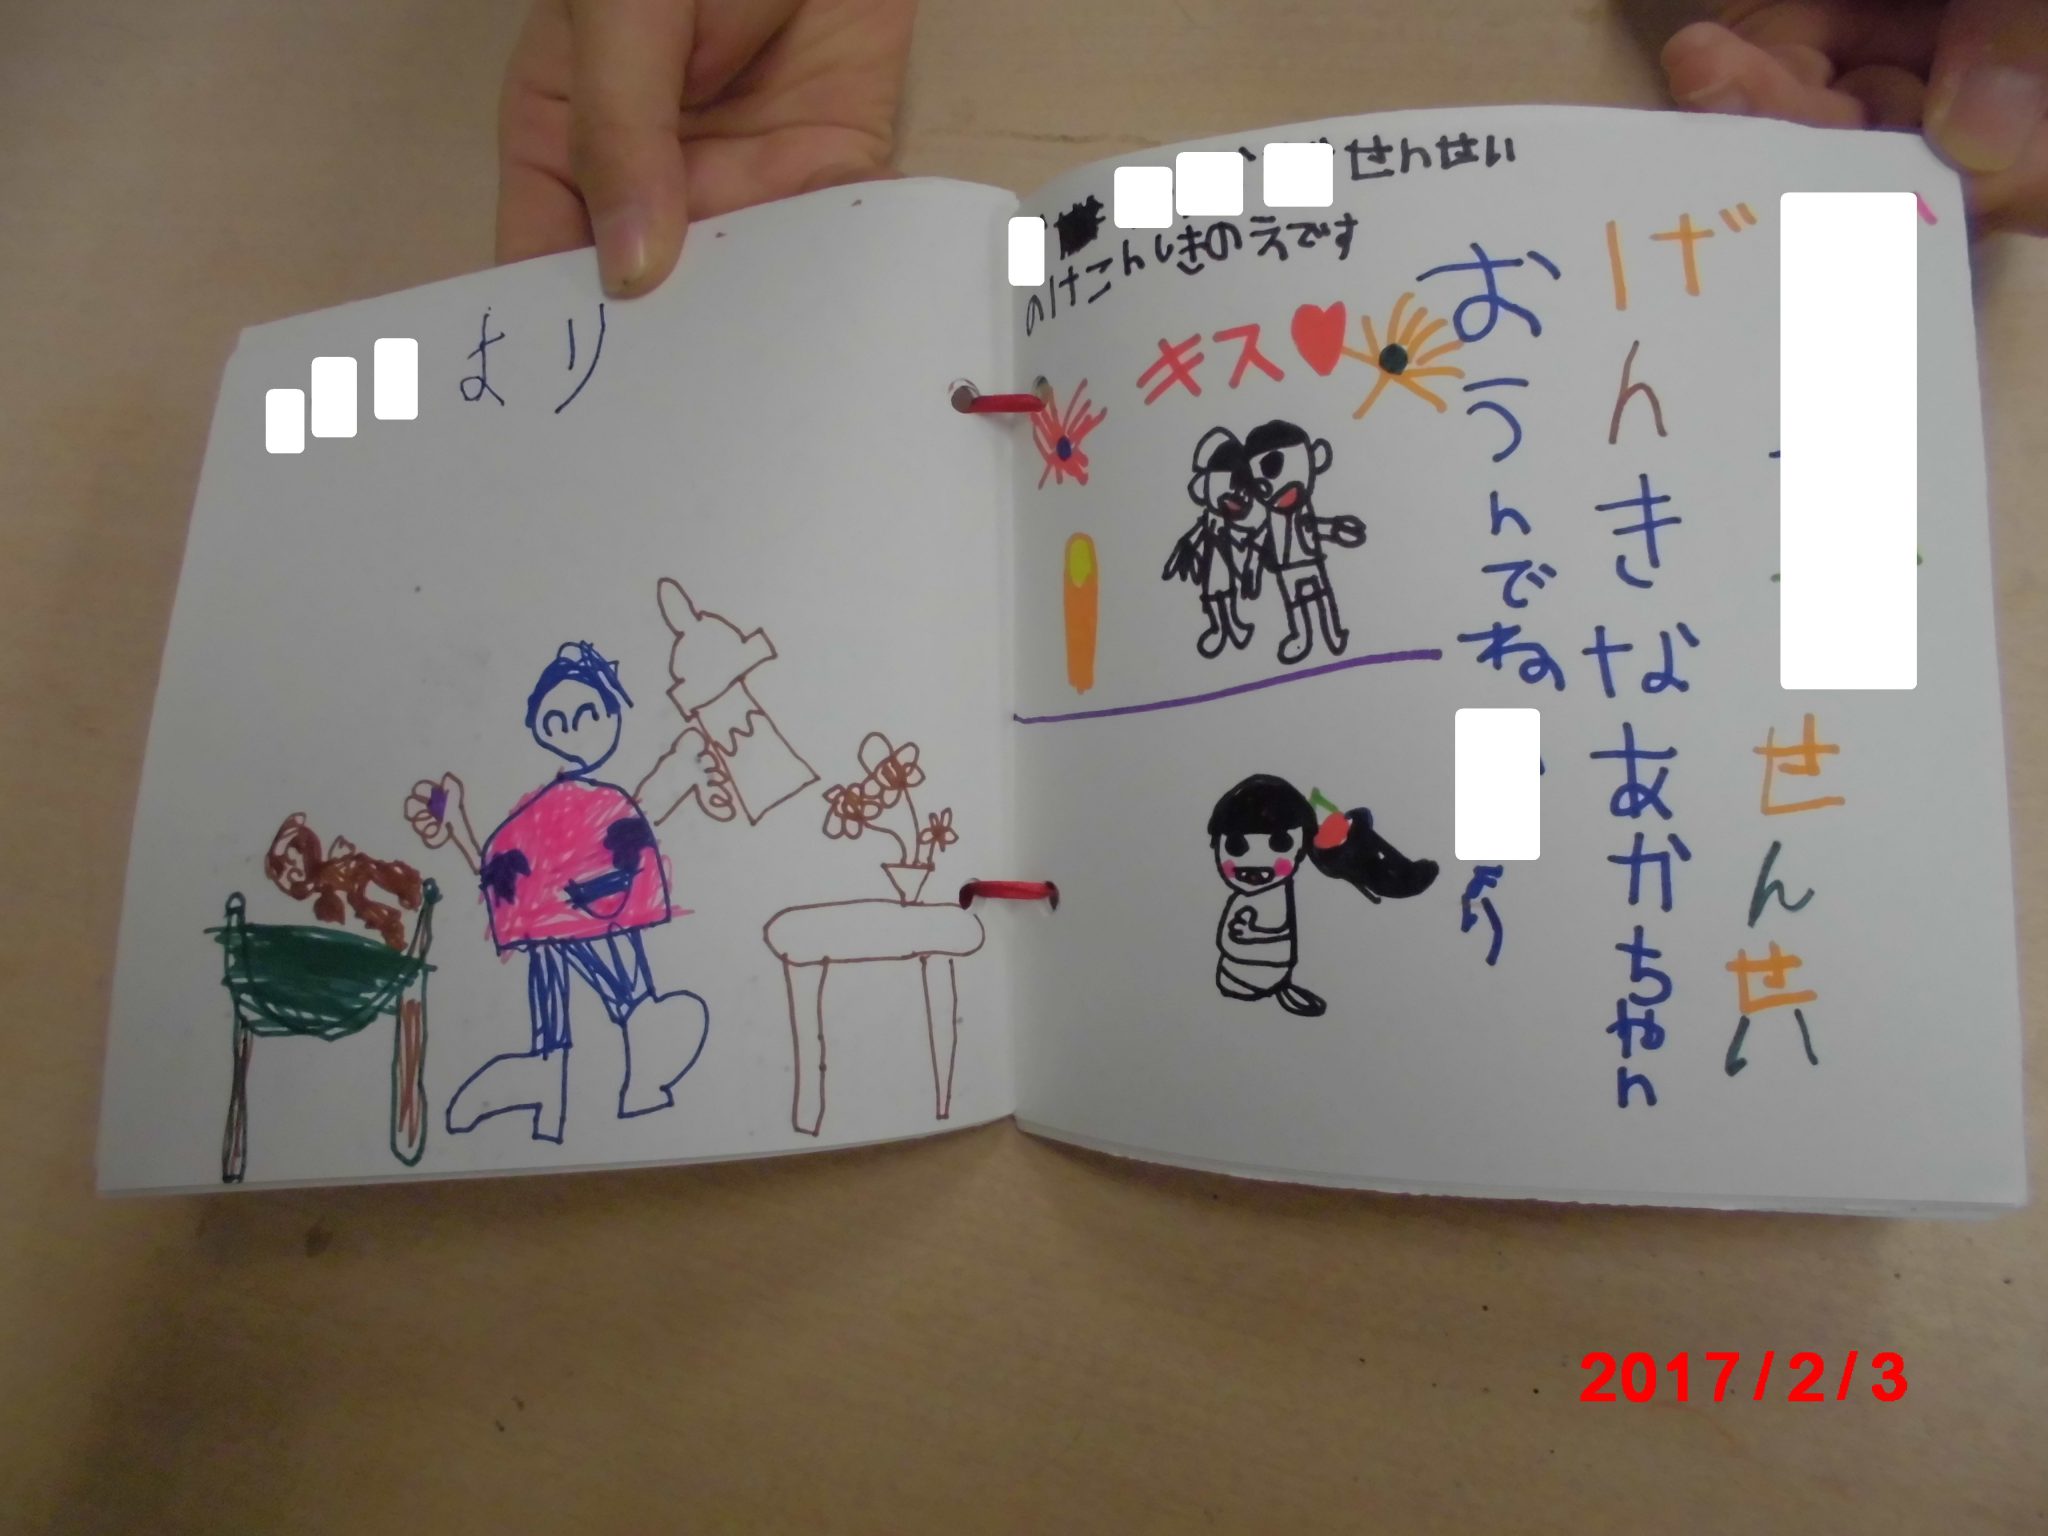 より
せんせい
のけこんしきのえです
キス
せんせい
げんきなあかちゃん
おうんでね
より
2017/2/3